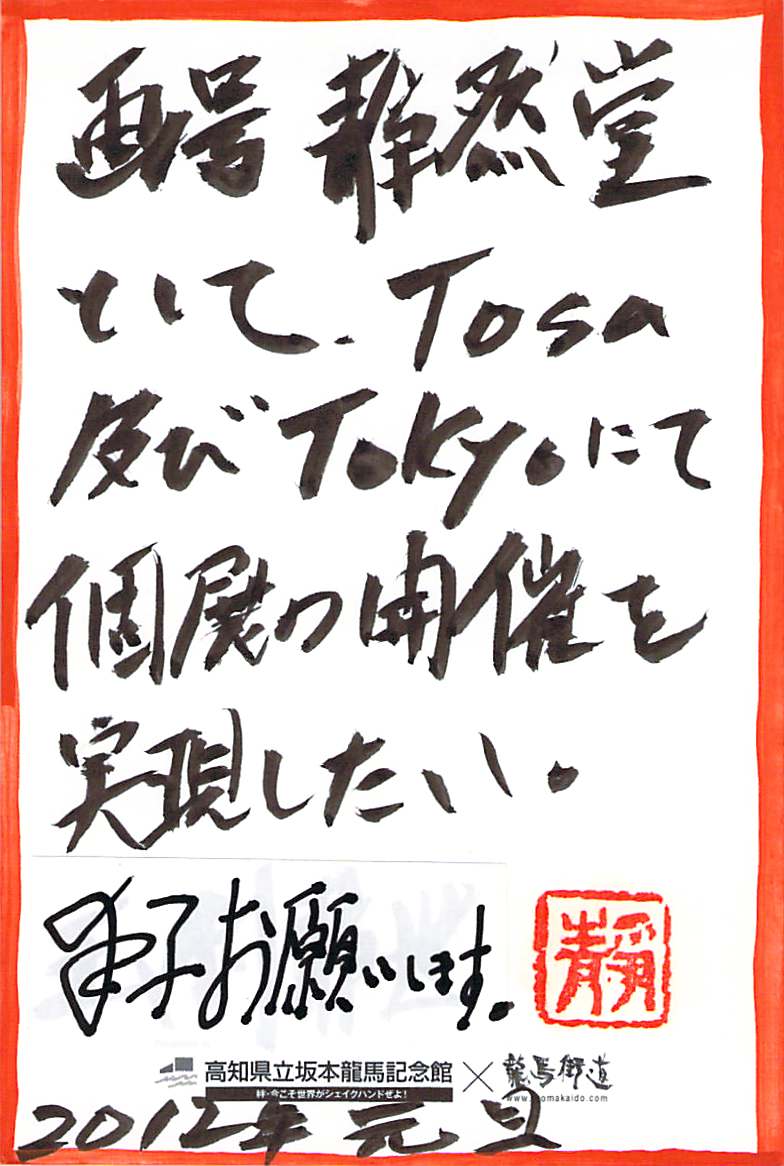 画号 静然堂
として、Tosa
及び Tokyoにて
個展の開催を
実現したい。
お願いします。
靜
高知県立坂本龍馬記念館 × 龍馬街道
絆・今こそ世界がシェイクハンドせよ！
www.ryomakaido.com
2012年 元旦